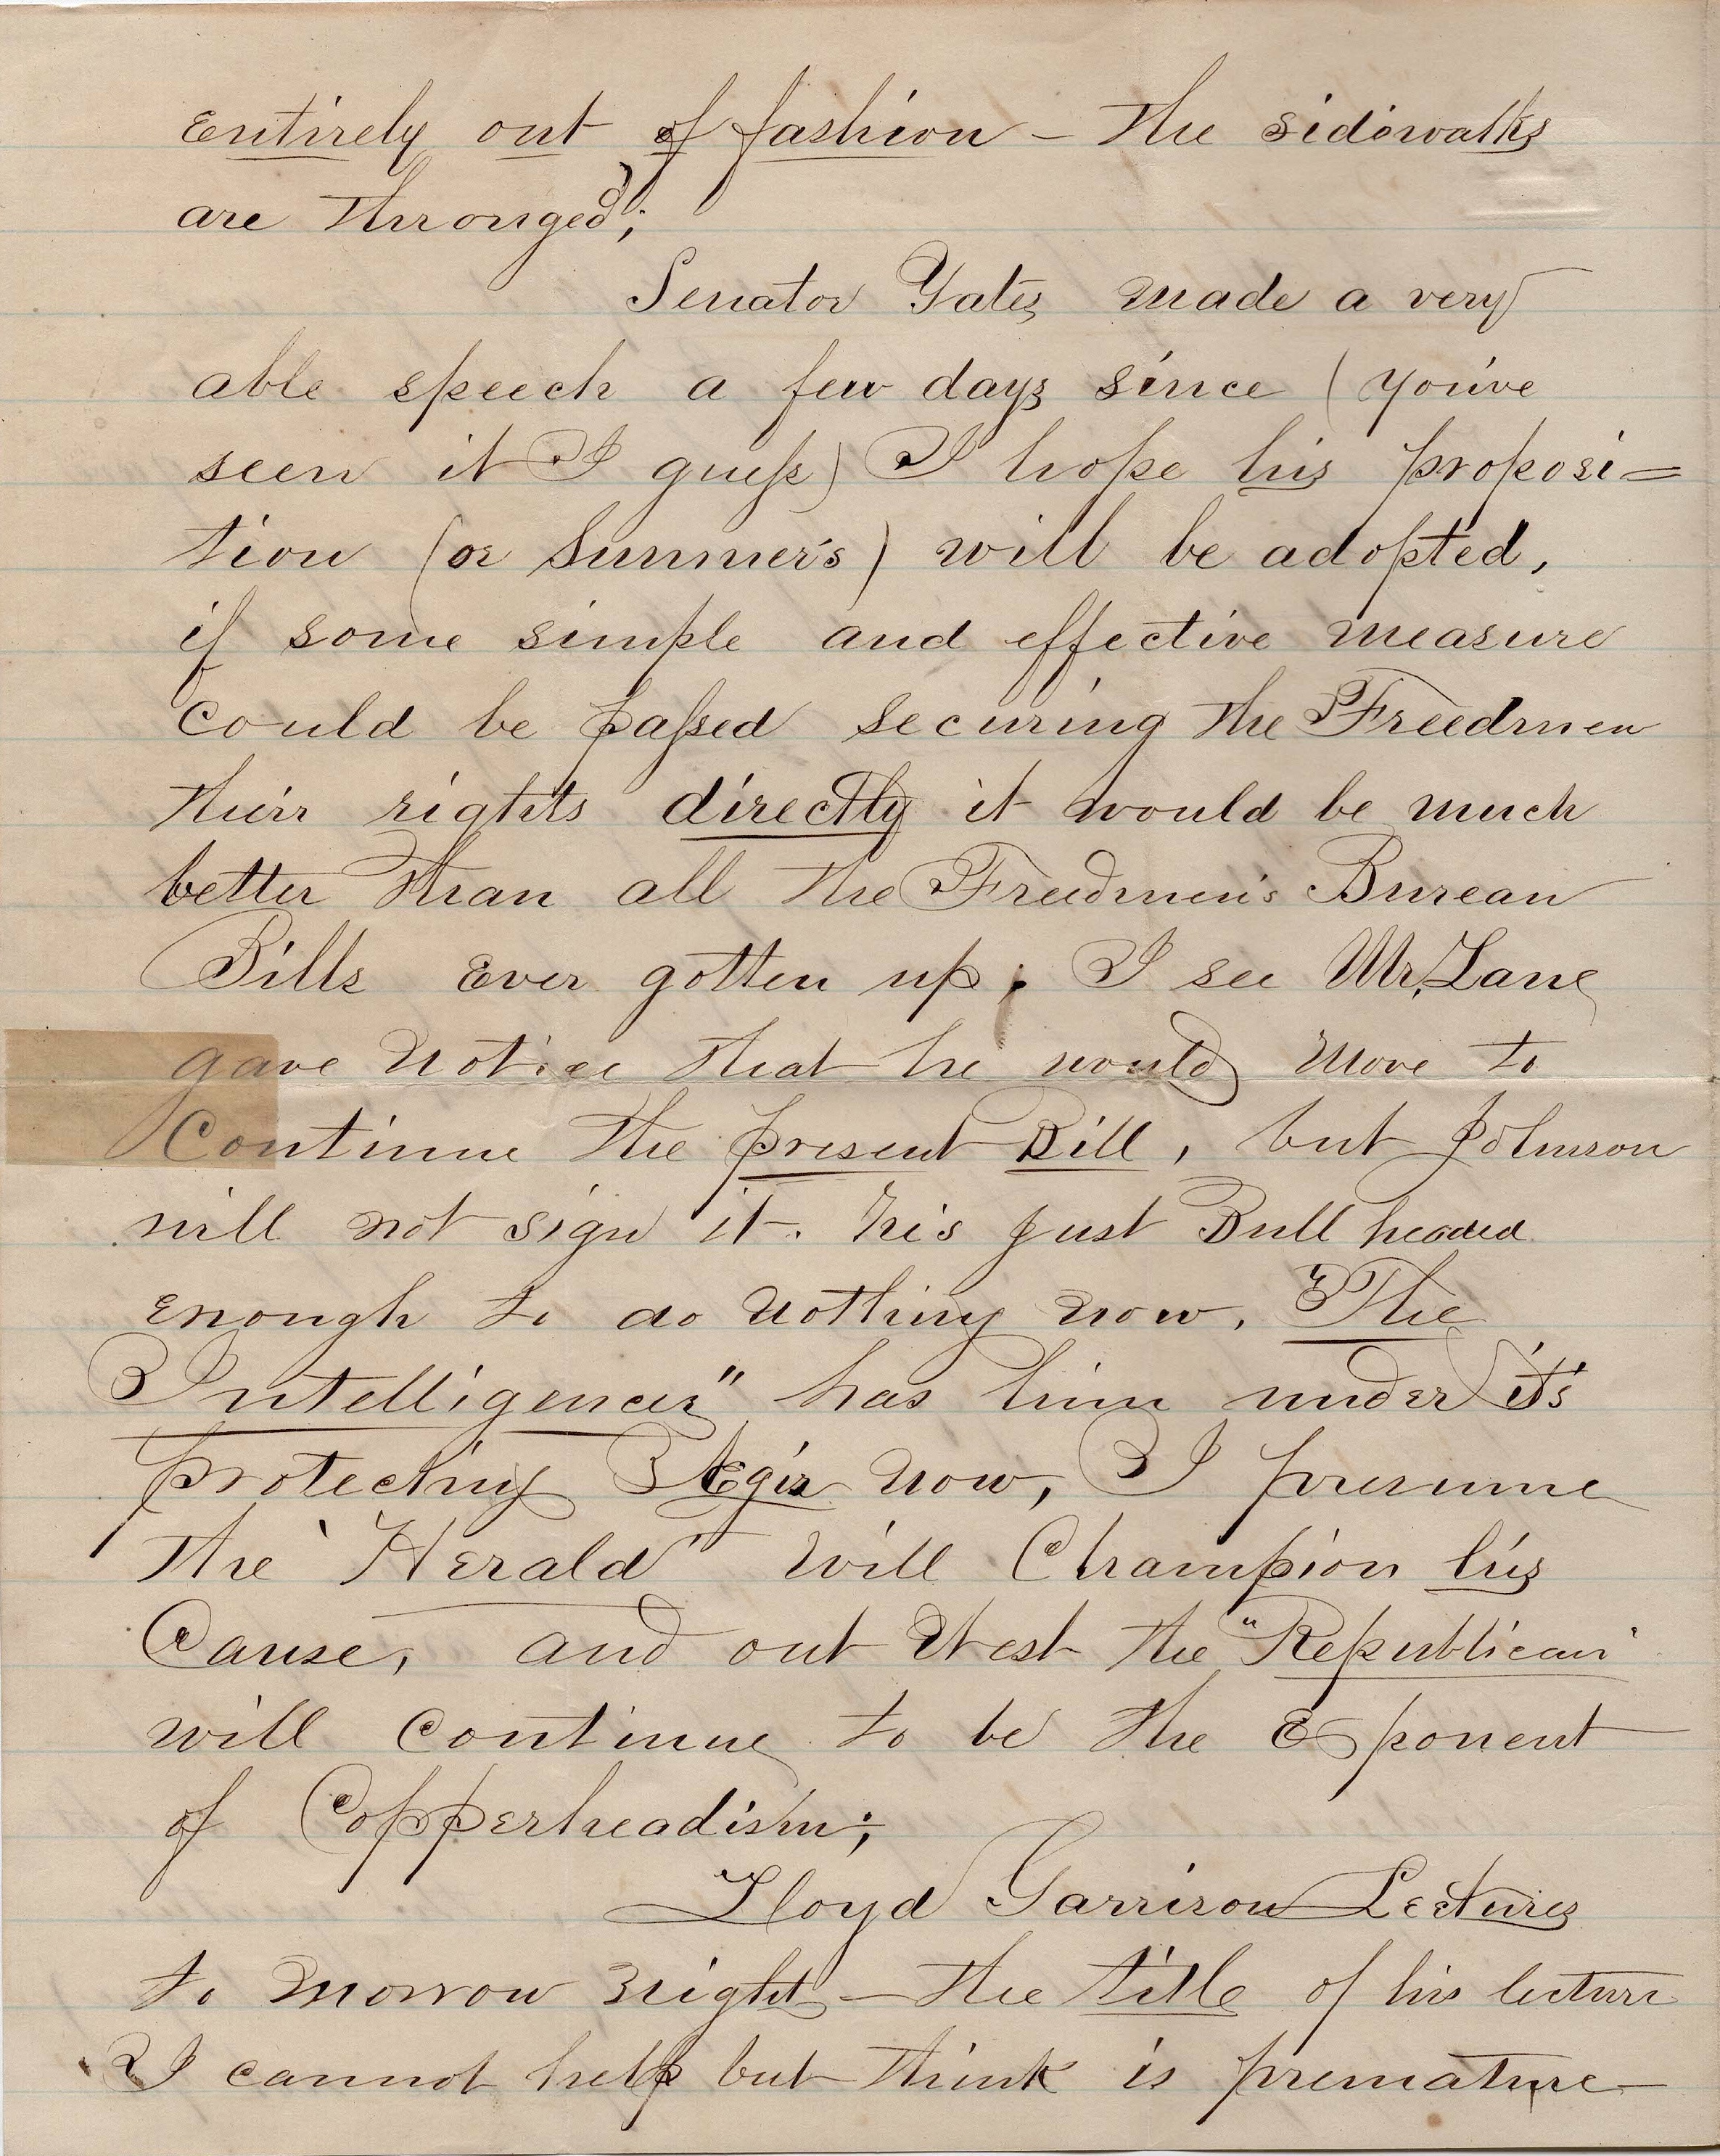 Entirely out of fashion – The sidewalks
are thronged;
Senator Yates made a very
able speech a few days since (you've
seen it I guess) I hope his proposi=
tion (or Sumner's) will be adopted,
if some simple and effective measure
could be passed securing the Freedmen
their rights directly it would be much
better than all the Freedmen's Bureau
Bills ever gotten up; I see Mr. Lane
gave notice that he would move to
Continue the present Bill, but Johnson
will not sign it. he's just Bull headed
enough to do nothing now. The
Intelligencer" has him under it's
protecting Aegis now, I presume
the "Herald" will Champion his
Cause, and out West the "Republican"
will continue to be the Exponent
of Copperheadism;
Lloyd Garrison Lectures
to morrow night – the title of his lecture
I cannot help but think is premature –